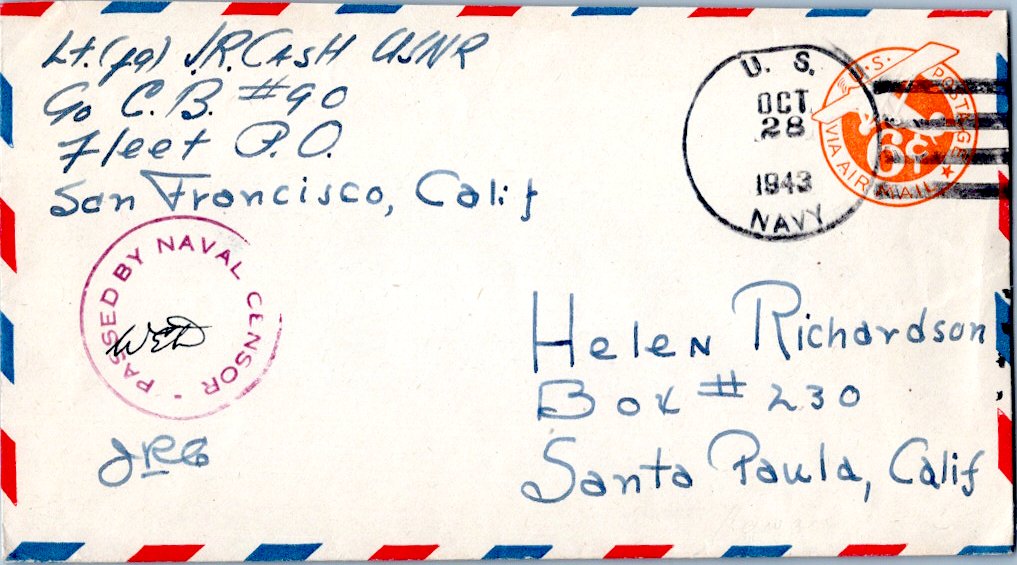 Lt. (jg) J.R. CASH USNR
Co C.B. #90
Fleet P.O.
San Francisco, Calif
U. S.
OCT
28
1943
NAVY
U.S. POSTAGE
6¢
VIA AIR MAIL
PASSED BY NAVAL CENSOR
WED
JRC
Helen Richardson
Box # 230
Santa Paula, Calif